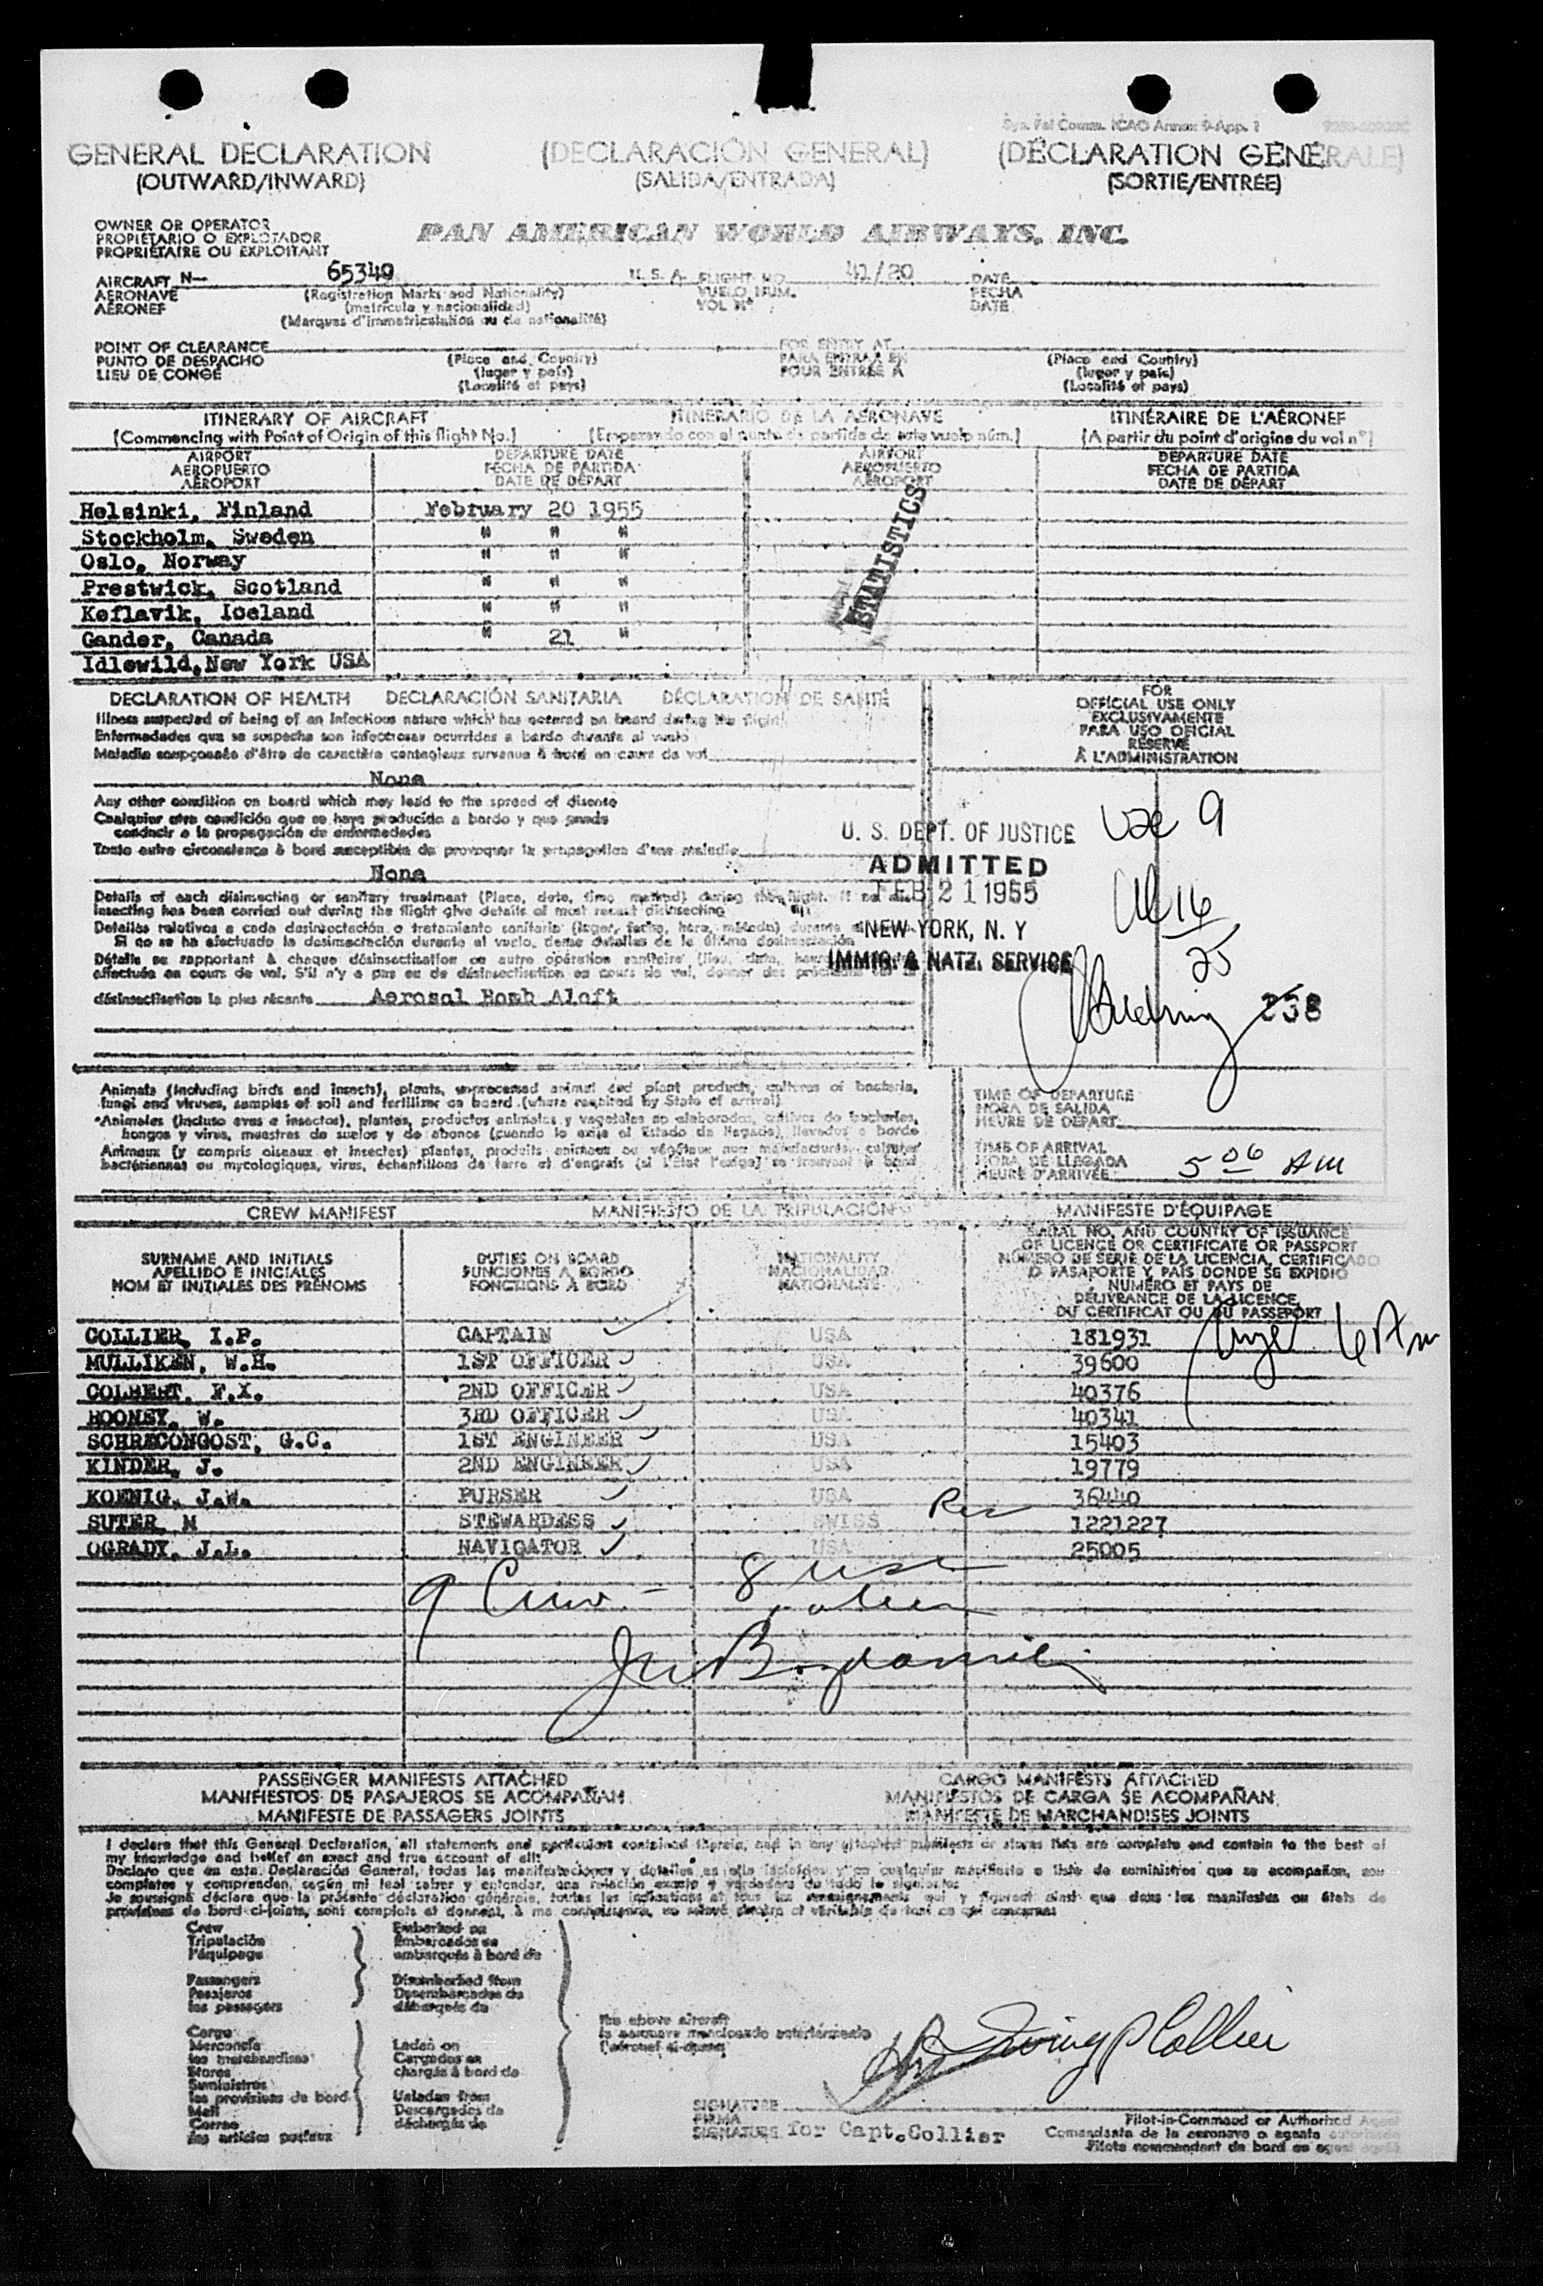 Sys. Fel Comm. ICAO Annex 9-App. 1
GENERAL DECLARATION (DECLARACIÓN GENERAL) (DÉCLARATION GÉNÉRALE)
(OUTWARD/INWARD) (SALIDA/ENTRADA) (SORTIE/ENTRÉE)
OWNER OR OPERATOR
PROPIETARIO O EXPLOTADOR
PROPRIÉTAIRE OU EXPLOITANT
PAN AMERICAN WORLD AIRWAYS, INC.
AIRCRAFT N- 65349 U. S. A. FLIGHT NO. 41/20 DATE
AERONAVE (Registration Marks and Nationality) VUELO NUM. FECHA
AÉRONEF (matrícula y nacionalidad) VOL Nº DATE
(Marques d'immatriculation ou de nationalité)
POINT OF CLEARANCE FOR ENTRY AT
PUNTO DE DESPACHO (Place and Country) PARA ENTRAR EN (Place and Country)
LIEU DE CONGÉ (lugar y país) POUR ENTRÉE A (lugar y país)
(Localité et pays) (Localité et pays)
ITINERARY OF AIRCRAFT ITINERARIO DE LA AERONAVE ITINÉRAIRE DE L'AÉRONEF
(Commencing with Point of Origin of this flight No.) (Empezando con el punto de partida de este vuelo núm.) (A partir du point d'origine du vol nº)
AIRPORT DEPARTURE DATE AIRPORT DEPARTURE DATE
AEROPUERTO FECHA DE PARTIDA AEROPUERTO FECHA DE PARTIDA
AÉROPORT DATE DE DÉPART AÉROPORT DATE DE DÉPART
Helsinki, Finland February 20 1955
Stockholm, Sweden " " "
Oslo, Norway " " "
Prestwick, Scotland " " "
Keflavik, Iceland " " "
Gander, Canada " 21 "
Idlewild, New York USA
STATISTICS
DECLARATION OF HEALTH DECLARACIÓN SANITARIA DÉCLARATION DE SANTÉ
Illness suspected of being of an infectious nature which has occured on board during the flight
Enfermedades que se sospecha son infecciosas ocurridas a bordo durante el vuelo
Maladie soupçonnée d'être de caractère contagieux survenue à bord en cours de vol
None
Any other condition on board which may lead to the spread of disease
Cualquier otra condición que se haya producido a bordo y que pueda
conducir a la propagación de enfermedades
Toute autre circonstance à bord susceptible de provoquer la propagation d'une maladie
None
Details of each disinsecting or sanitary treatment (Place, date, time, method) during the flight. If no
insecting has been carried out during the flight give details of most recent disinsecting
Detalles relativos a cada desinsectación o tratamiento sanitario (lugar, fecha, hora, método) durante
Si no se ha efectuado la desinsectación durante el vuelo, dense detalles de la última desinsectación
Détails se rapportant à chaque désinsectisation ou autre opération sanitaire (lieu, date, heure
effectuée en cours de vol. S'il n'y a pas eu de désinsectisation en cours de vol, donner des précisions
désinsectisation la plus récente Aerosol Bomb Aloft
FOR
OFFICIAL USE ONLY
EXCLUSIVAMENTE
PARA USO OFICIAL
RÉSERVÉ
À L'ADMINISTRATION
U. S. DEPT. OF JUSTICE
ADMITTED
FEB 21 1955
NEW YORK, N. Y
IMMIG. & NATZ. SERVICE
9
16
25
238
Animals (including birds and insects), plants, unprocessed animal and plant products, cultures of bacteria,
fungi and viruses, samples of soil and fertilizer on board (where required by State of arrival)
Animales (incluso aves e insectos), plantas, productos animales y vegetales no elaborados, cultivos de bacterias,
hongos y virus, muestras de suelos y de abonos (cuando lo exija el Estado de llegada), llevados a bordo
Animaux (y compris oiseaux et insectes) plantes, produits animaux ou végétaux non manufacturés, cultures
bactériennes ou mycologiques, virus, échantillons de terre et d'engrais (si l'État l'exige) se trouvant à bord
TIME OF DEPARTURE
HORA DE SALIDA
HEURE DE DÉPART
TIME OF ARRIVAL
HORA DE LLEGADA
HEURE D'ARRIVÉE 5 06 AM
CREW MANIFEST MANIFIESTO DE LA TRIPULACIÓN MANIFESTE D'ÉQUIPAGE
SURNAME AND INITIALS
APELLIDO E INICIALES
NOM ET INITIALES DES PRÉNOMS
DUTIES ON BOARD
FUNCIONES A BORDO
FONCTIONS A BORD
NATIONALITY
NACIONALIDAD
NATIONALITÉ
SERIAL NO. AND COUNTRY OF ISSUANCE
OF LICENCE OR CERTIFICATE OR PASSPORT
NÚMERO DE SERIE DE LA LICENCIA, CERTIFICADO
O PASAPORTE Y PAÍS DONDE SE EXPIDIÓ
NUMÉRO ET PAYS DE
DÉLIVRANCE DE LA LICENCE,
DU CERTIFICAT OU DU PASSEPORT
COLLIER, I.P. CAPTAIN USA 181931
MULLIKEN, W.H. 1ST OFFICER USA 39600
COLBERT, F.X. 2ND OFFICER USA 40376
ROONEY, W. 3RD OFFICER USA 40341
SCHRECONGOST, G.C. 1ST ENGINEER USA 15403
KINDER, J. 2ND ENGINEER USA 19779
KOENIG, J.W. PURSER USA 36440
SUTER, M STEWARDESS SWISS 1221227
OGRADY, J.L. NAVIGATOR USA 25005
9 Crew - 8 USC
PASSENGER MANIFESTS ATTACHED CARGO MANIFESTS ATTACHED
MANIFIESTOS DE PASAJEROS SE ACOMPAÑAN MANIFIESTOS DE CARGA SE ACOMPAÑAN
MANIFESTE DE PASSAGERS JOINTS MANIFESTE DE MARCHANDISES JOINTS
I declare that this General Declaration, all statements and particulars contained therein, and in any attached manifests or stores lists are complete and contain to the best of
my knowledge and belief an exact and true account of all:
Declaro que en esta Declaración General, todas las manifestaciones y detalles en ella incluídos y en cualquier manifiesto o lista de suministros que se acompañan, son
completos y comprenden, según mi leal saber y entender, una relación exacta y verdadera de todo lo siguiente:
Je soussigné déclare que la présente déclaration générale, toutes les indications et tous les renseignements qui y figurent ainsi que dans les manifestes ou états de
provisions de bord ci-joints, sont complets et donnent, à ma connaissance, un relevé sincère et véritable de tout ce qui concerne:
Crew
Tripulación
l'équipage
Passengers
Pasajeros
les passagers
Embarked on
Embarcados en
embarqués à bord de
Disembarked from
Desembarcados de
débarqués de
Cargo
Mercancía
les marchandises
Stores
Suministros
les provisions de bord
Mail
Correo
les articles postaux
Laden on
Cargados en
chargés à bord de
Unladen from
Descargados de
déchargés de
the above aircraft
la aeronave mencionada anteriormente
l'aéronef ci-dessus
Irving P Collier
SIGNATURE
FIRMA
SIGNATURE for Capt. Collier
Pilot-in-Command or Authorized Agent
Comandante de la aeronave o agente autorizado
Pilote commandant de bord ou agent agréé